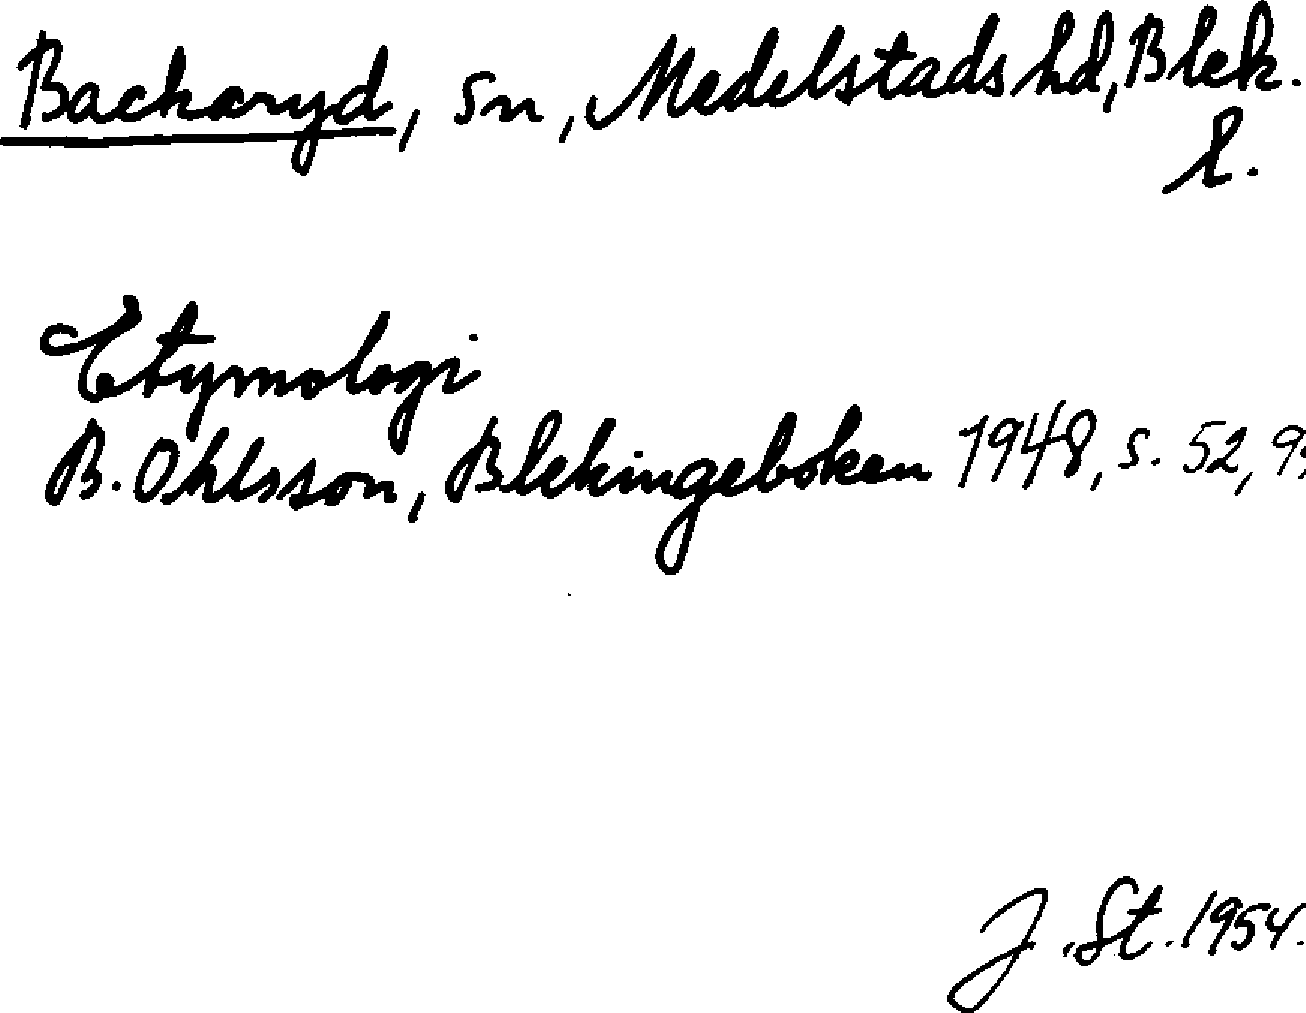 Backaryd, sn, Medelstads hd, Blek.
l.
Etymologi
B. Ohlsson, Blekingeboken 1948, s. 52,
J. St. 1954.